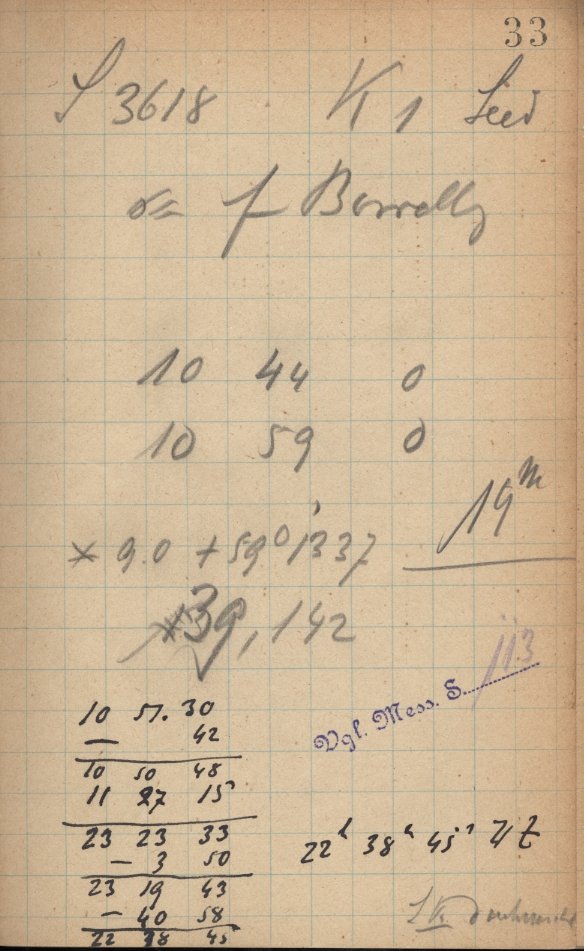 33
S 3618 K 1 Seed
f Borrelly
10 44 0
10 59 0
19ᵐ
× 9.0 + 59° 1337
39, 142
113
Vgl. Mess. S.
10 51. 30
— 42
10 50 48
11 27 15
23 23 33
— 3 50
23 19 43
— 40 58
22 38 45
22ʰ 38ᵐ 45ˢ